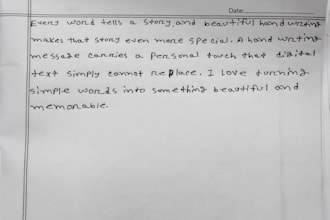 Date:
Every word tells a story, and beautiful hand writing
makes that story even more special. A hand writing
message carries a personal touch that digital
text simply cannot replace. I love turning
simple words into something beautiful and
memorable.